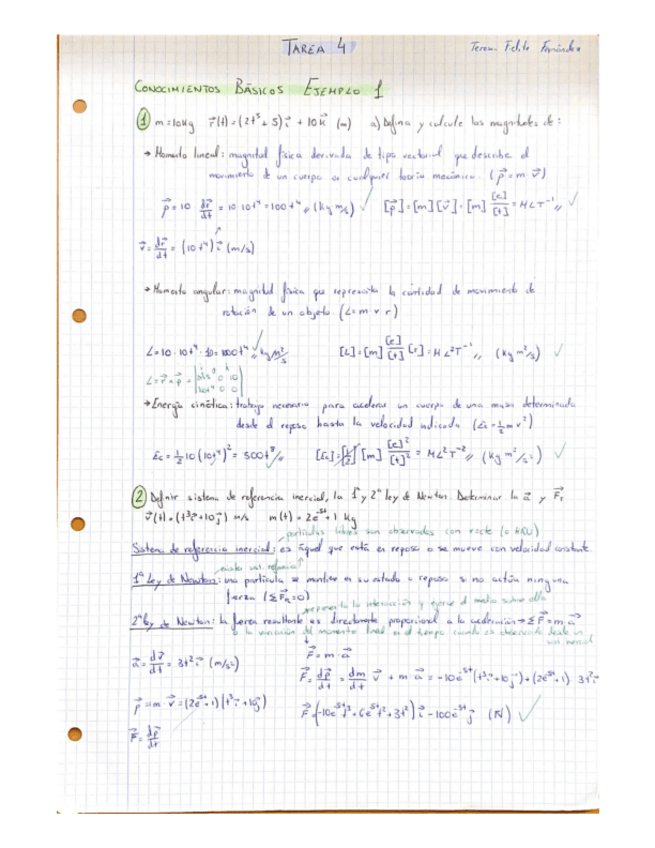 TAREA 4
Teresa Felite Fernández
CONOCIMIENTOS BÁSICOS EJEMPLO 1
① m=10Kg r⃗(t)=(2t⁵+5)i⃗ + 10k⃗ (m) a) Defina y calcule las magnitudes de:
→ Momento lineal: magnitud física derivada de tipo vectorial que describe el
movimiento de un cuerpo en cualquier teoría mecánica. (p⃗=m·v⃗)
p⃗=10 dr⃗/dt = 10·10t⁴=100t⁴ // (kg m/s) ✓ [p⃗]=[m][v⃗]=[m] [e]/[t] = MLT⁻¹ // ✓
v⃗=dr⃗/dt = (10t⁴)i⃗ (m/s)
→ Momento angular: magnitud física que representa la cantidad de movimiento de
rotación de un objeto. (L=m v r)
L=10·10t⁴·10=1000t⁴ // kg m²/s ✓ [L]=[m] [e]/[t] [r]=ML²T⁻¹ // (kg m²/s) ✓
L=r⃗∧p⃗=
→ Energía cinética: trabajo necesario para acelerar un cuerpo de una masa determinada
desde el reposo hasta la velocidad indicada (Ec=½mv²)
Ec=½10(10t⁴)²=500t⁸ // [Ec]=[½][m] [e]²/[t]² = ML²T⁻² // (kg m²/s²) ✓
② Definir sistema de referencia inercial, la 1ª y 2ª ley de Newton. Determinar la a⃗ y F⃗
v⃗(t)=(t³i⃗+10j⃗) m/s m(t)=2e⁻⁵ᵗ+1 kg
partículas libres son observadas con v=cte (o MRU)
Sistema de referencia inercial: es aquel que está en reposo o se mueve con velocidad constante.
existen sist. referencia
1ª Ley de Newton: una partícula se mantiene en su estado o reposo si no actúa ninguna
fuerza (ΣF⃗=0)
representa la interacción y ejerce el medio sobre ella
2ª ley de Newton: la fuerza resultante es directamente proporcional a la aceleración → ΣF⃗=m a⃗
a la variación del momento lineal en el tiempo cuando es observada desde un
inercial
F⃗=m·a⃗
a⃗=dv⃗/dt=3t²i⃗ (m/s²) F⃗=dp⃗/dt=dm/dt v⃗ + m a⃗ = -10e⁻⁵ᵗ(t³i⃗+10j⃗)+(2e⁻⁵ᵗ+1) 3t²i⃗
p⃗=m·v⃗=(2e⁻⁵ᵗ+1)(t³i⃗+10j⃗) F⃗=(-10e⁻⁵ᵗt³+6e⁻⁵ᵗt²+3t²)i⃗-100e⁻⁵ᵗj⃗ (N) ✓
F⃗=dp⃗/dt